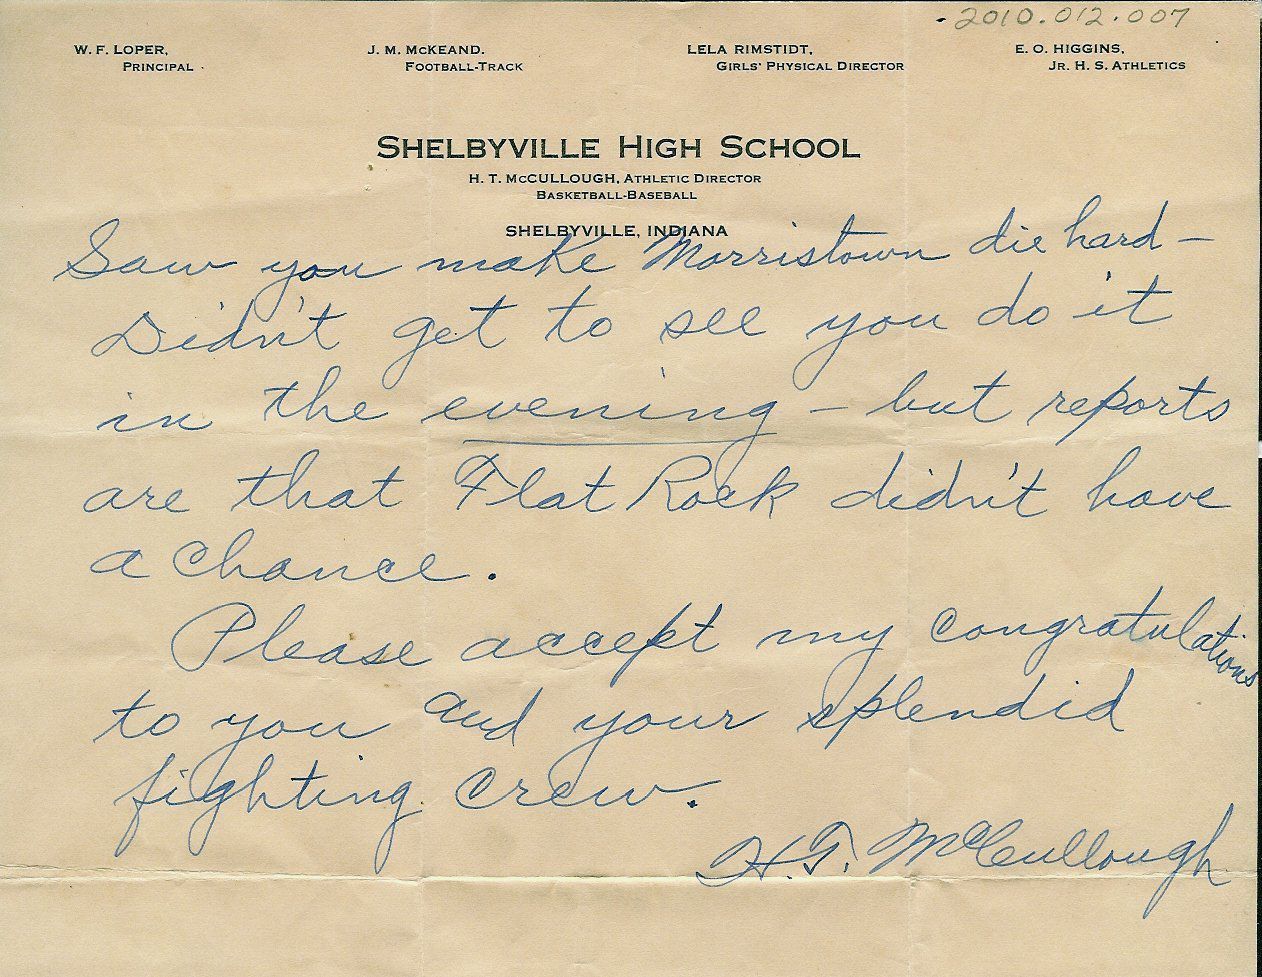 2010.012.007
W. F. LOPER, J. M. McKEAND. LELA RIMSTIDT, E. O. HIGGINS,
PRINCIPAL FOOTBALL-TRACK GIRLS' PHYSICAL DIRECTOR JR. H. S. ATHLETICS
SHELBYVILLE HIGH SCHOOL
H. T. McCULLOUGH, ATHLETIC DIRECTOR
BASKETBALL-BASEBALL
SHELBYVILLE, INDIANA
Saw you make Morristown die hard –
Didn't get to see you do it
in the evening – but reports
are that Flat Rock didn't have
a chance.
Please accept my congratulations
to you and your splendid
fighting crew.
H. T. McCullough